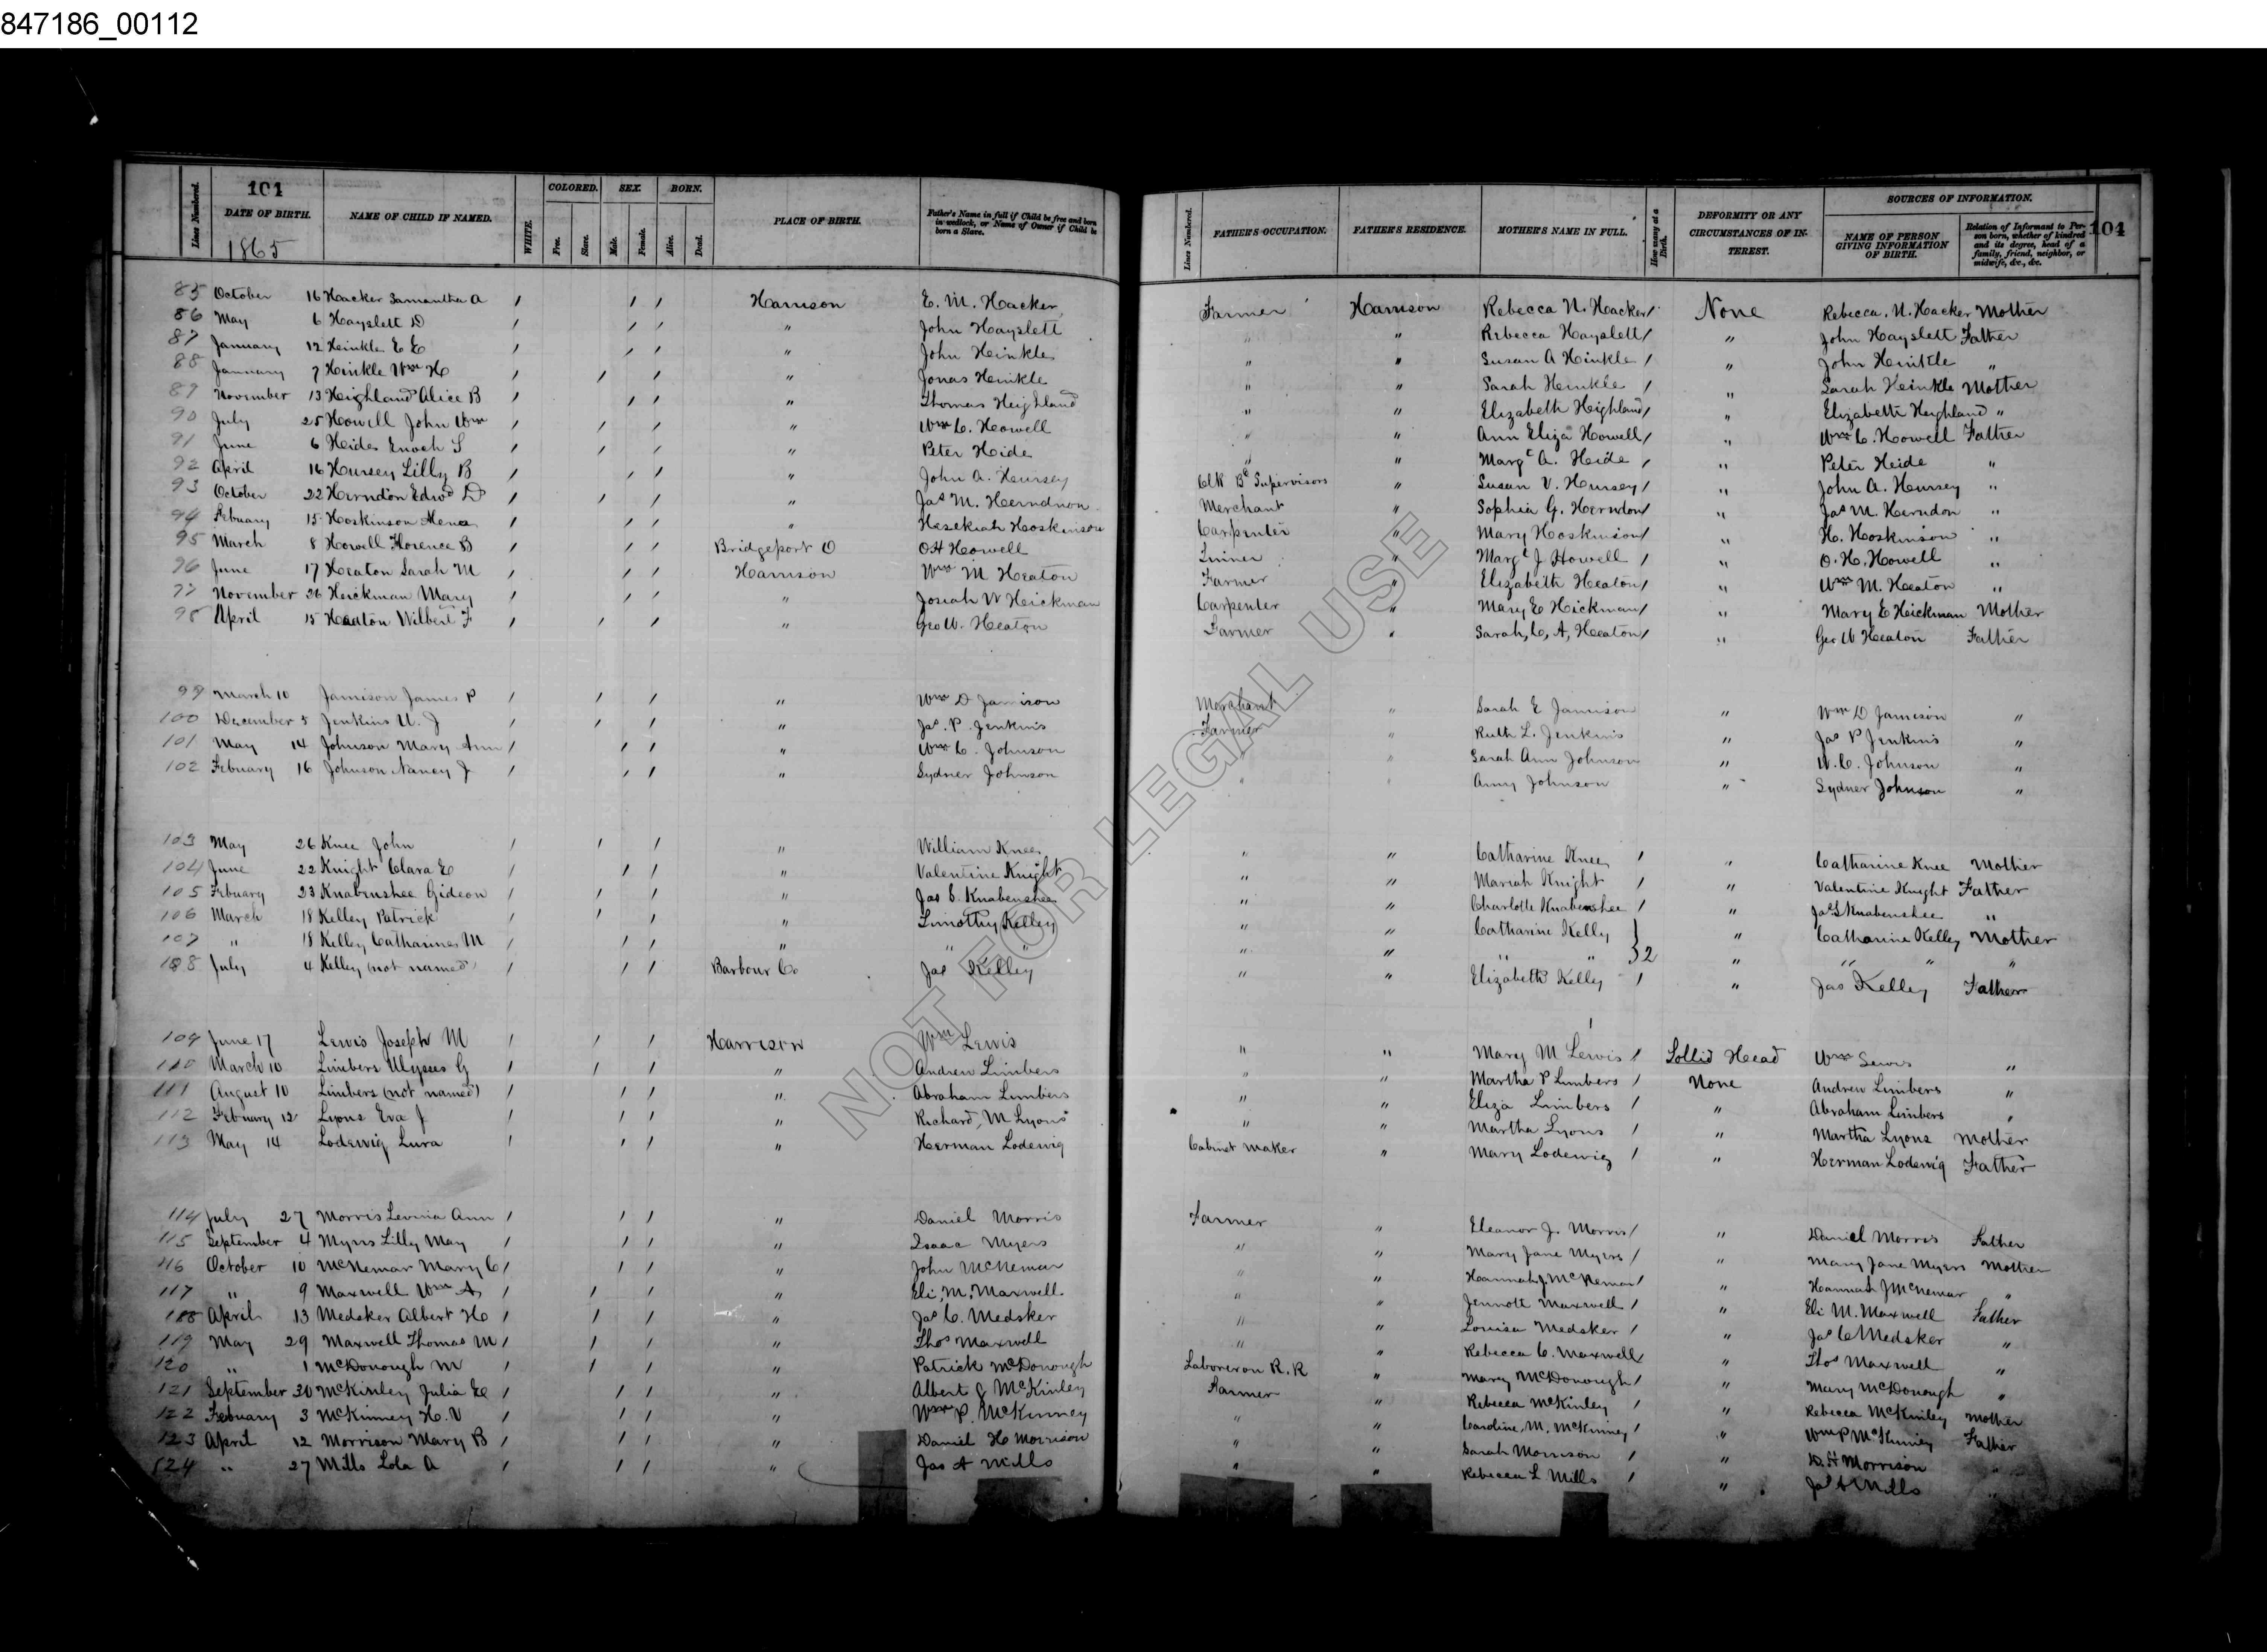 847186_00112
Lines Numbered.
101
DATE OF BIRTH.
1865
NAME OF CHILD IF NAMED.
WHITE.
COLORED.
Free.
Slave.
SEX.
Male.
Female.
BORN.
Alive.
Dead.
PLACE OF BIRTH.
Father's Name in full if Child be free and born in wedlock, or Name of Owner if Child be born a Slave.
Lines Numbered.
FATHER'S OCCUPATION.
FATHER'S RESIDENCE.
MOTHER'S NAME IN FULL.
How many at a Birth.
DEFORMITY OR ANY CIRCUMSTANCES OF INTEREST.
SOURCES OF INFORMATION.
NAME OF PERSON GIVING INFORMATION OF BIRTH.
Relation of Informant to Person born, whether of kindred and its degree, head of a family, friend, neighbor, or midwife, &c., &c.
104
85 October 16 Hacker Samantha A / / / Harrison E. M. Hacker Farmer Harrison Rebecca N. Hacker / None Rebecca. N. Hacker Mother
86 May 6 Hayslett D / / / " John Hayslett " " Rebecca Hayslett / " John Hayslett Father
87 January 12 Heinkle E E / / / " John Heinkle " " Susan A Hinkle / " John Heinkle "
88 January 7 Hinkle Wm H / / / " Jonas Heinkle " " Sarah Heinkle / " Sarah Heinkle Mother
89 November 13 Heighland Alice B / / / " Thomas Heighland " " Elizabeth Highland / " Elizabeth Heighland "
90 July 25 Howell John Wm / / / " Wm C. Howell " " Ann Eliza Howell / " Wm C. Howell Father
91 June 6 Heide Enoch S / / / " Peter Heide " " Margt A. Heide / " Peter Heide "
92 April 16 Hursey Lilly B / / / " John A. Hursey Clk Bd Supervisors " Susan V. Hursey / " John A. Hursey "
93 October 22 Herndon Edwd D / / / " Jas M. Herndnon Merchant " Sophia G. Herndon / " Jas M. Herndon "
94 Febuary 15 Hoskinson Mena / / / " Hezekiah Hoskinson Carpenter " Mary Hoskinson / " H. Hoskinson "
95 March 8 Howell Florence B / / / Bridgeport O OH Howell " Margt J Howell / " O. H. Howell "
96 June 17 Heaton Sarah M / / / Harrison Wm M Heaton Farmer " Elizabeth Heaton / " Wm M. Heaton "
97 November 26 Heickman Mary / / / " Josiah W Heickman Carpenter " Mary E Hickman / " Mary E Heickman Mother
98 April 15 Heaton Wilbert F / / / " Geo W. Heaton Farmer " Sarah, C, A, Heaton / " Geo W Heaton Father
99 March 10 Jamison James P / / / " Wm D Jamison Merchant " Sarah E Jamison " Wm D Jamison "
100 December 5 Jenkins U. J / / / " Jas. P. Jenkins Farmer " Ruth L. Jenkins " Jas P Jenkins "
101 May 14 Johnson Mary Ann / / / " Wm C. Johnson " " Sarah Ann Johnson " W. C. Johnson "
102 Febuary 16 Johnson Nancy J / / / " Sydner Johnson " " Amy Johnson " Sydner Johnson "
103 May 26 Knee John / / / " William Knee " " Catharine Knee / " Catharine Knee Mother
104 June 22 Knight Clara E / / / " Valentine Knight " " Mariah Knight / " Valentine Knight Father
105 Febuary 23 Knabenshee Gideon / / / " Jas S. Knabenshee " " Charlotte Knabenshee / " Jas S Knabenshee "
106 March 18 Kelley Patrick / / / " Timothy Kelley " " Catharine Kelly } 2 " Catharine Kelley Mother
107 " 18 Kelley Catharine M / / / " " " " " " " " " " "
108 July 4 Kelley (not named) / / / Barbour Co Jas Kelley " " Elizabeth Kelley / " Jas Kelley Father
109 June 17 Lewis Joseph M / / / Harrison Wm Lewis " " Mary M Lewis / Sollid Head Wm Lewis "
110 March 10 Limbers Ulysses G / / / " Andrew Limbers " " Martha P Limbers / None Andrew Limbers "
111 August 10 Limbers (not named) / / / " Abraham Limbers " " Eliza Limbers / " Abraham Limbers "
112 Febuary 12 Lyons Eva J / / / " Richard, M Lyons " " Martha Lyons / " Martha Lyons Mother
113 May 14 Lodewig Lura / / / " Herman Lodewig Cabinet Maker " Mary Lodewig / " Herman Lodewig Father
114 July 27 Morris Levina Ann / / / " Daniel Morris Farmer " Eleanor J. Morris / " Daniel Morris Father
115 September 4 Myers Lilly May / / / " Isaac Myers " " Mary Jane Myers / " Mary Jane Myers Mother
116 October 10 McNemar Mary C / / / " John McNemar " " Hannah J McNemar / " Hannah J McNemar "
117 " 9 Maxwell Wm A / / / " Eli, M, Maxwell " " Jennott Maxwell / " Eli M. Maxwell Father
118 April 13 Medsker Albert H / / / " Jas C. Medsker " " Louisa Medsker / " Jas C Medsker "
119 May 29 Maxwell Thomas M / / / " Thos Maxwell " " Rebecca C. Maxwell / " Thos Maxwell "
120 " 1 McDonough M / / / " Patrick McDonough Laborer on R. R " Mary McDonough / " Mary McDonough "
121 September 30 McKinley Julia E / / / " Albert G McKinley Farmer " Rebecca McKinley / " Rebecca McKinley Mother
122 Febuary 3 McKinney H. V / / / " Wm P. McKinney " " Caroline, M. McKinney / " Wm P McKinney Father
123 April 12 Morrison Mary B / / / " Daniel H Morrison " " Sarah Morrison / " D. H Morrison "
124 " 27 Mills Lola A / / / " Jas A Mills " " Rebecca L Mills / " Jas A Mills "
NOT FOR LEGAL USE